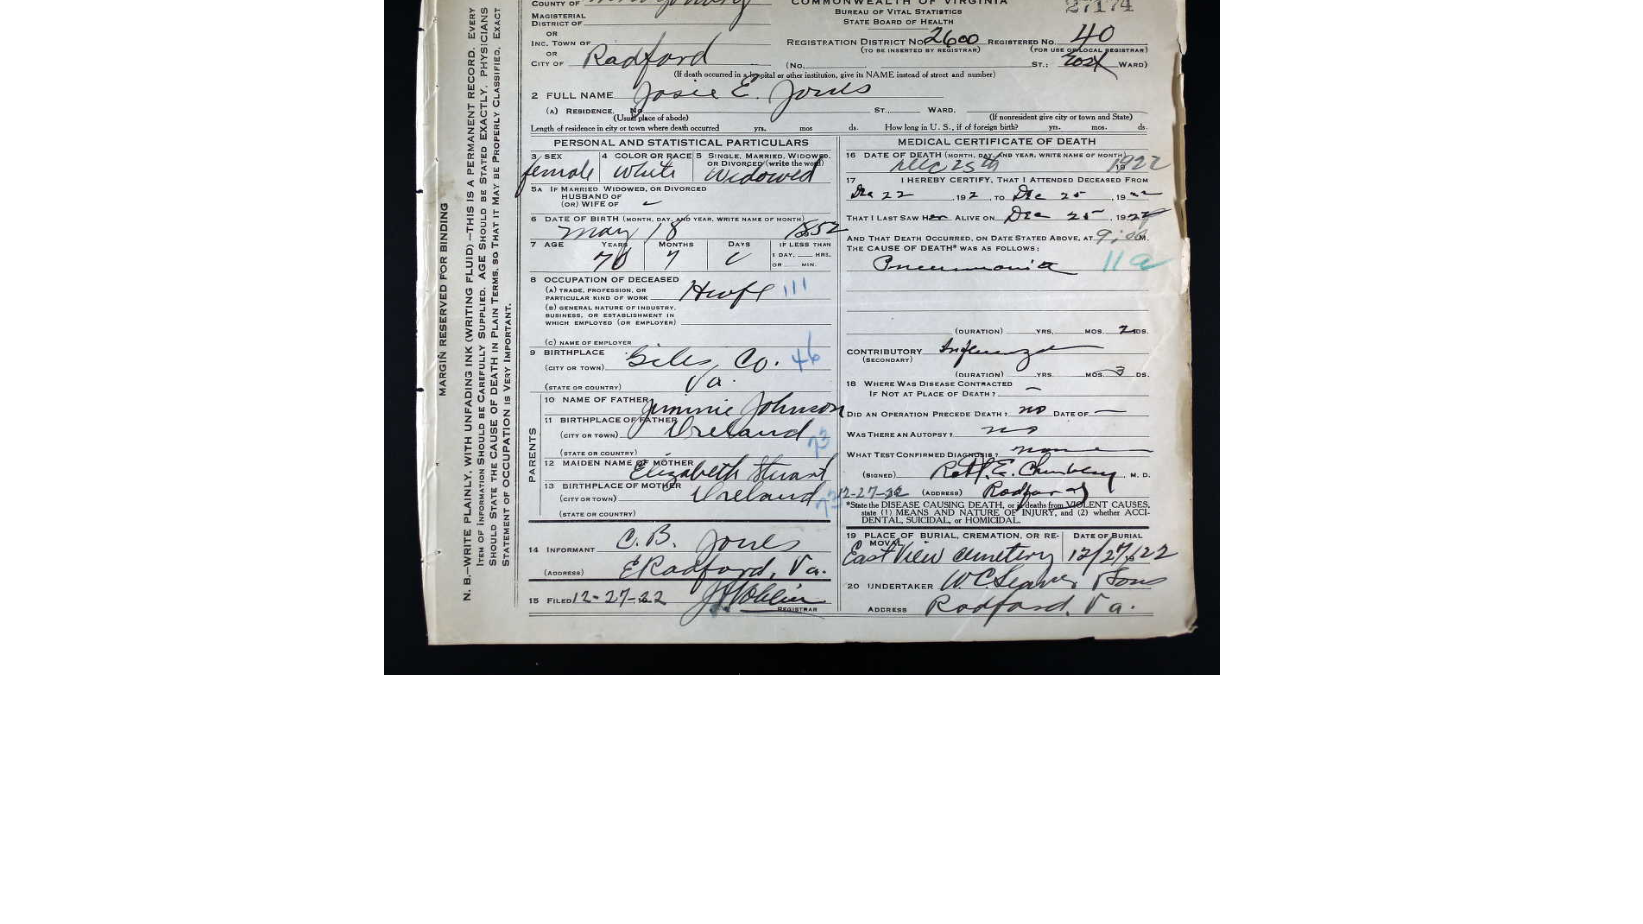 COUNTY OF Montgomery
COMMONWEALTH OF VIRGINIA
27174
MAGISTERIAL
DISTRICT OF
BUREAU OF VITAL STATISTICS
STATE BOARD OF HEALTH
OR
INC. TOWN OF
REGISTRATION DISTRICT NO. 2600 REGISTERED NO. 40
(TO BE INSERTED BY REGISTRAR) (FOR USE OF LOCAL REGISTRAR)
OR
CITY OF Radford (NO. ST.; West WARD)
(If death occurred in a hospital or other institution, give its NAME instead of street and number)
2 FULL NAME Josie E. Jones
(A) RESIDENCE. No. ST. WARD.
(Usual place of abode) (If nonresident give city or town and State)
Length of residence in city or town where death occurred yrs. mos ds. How long in U. S., if of foreign birth? yrs. mos. ds.
PERSONAL AND STATISTICAL PARTICULARS
3 SEX 4 COLOR OR RACE 5 SINGLE, MARRIED, WIDOWED, OR DIVORCED (write the word)
female white Widowed
5A IF MARRIED, WIDOWED, OR DIVORCED
HUSBAND OF
(OR) WIFE OF
6 DATE OF BIRTH (MONTH, DAY, AND YEAR, WRITE NAME OF MONTH)
May 18 1852
7 AGE YEARS MONTHS DAYS IF LESS THAN
1 DAY, HRS.
OR MIN.
70 7
8 OCCUPATION OF DECEASED
(A) TRADE, PROFESSION, OR
PARTICULAR KIND OF WORK Hwf 111
(B) GENERAL NATURE OF INDUSTRY,
BUSINESS, OR ESTABLISHMENT IN
WHICH EMPLOYED (OR EMPLOYER)
(C) NAME OF EMPLOYER
9 BIRTHPLACE Giles Co. 46
(CITY OR TOWN)
(STATE OR COUNTRY) Va.
PARENTS
10 NAME OF FATHER Jimmie Johnson
11 BIRTHPLACE OF FATHER
(CITY OR TOWN) Ireland 73
(STATE OR COUNTRY)
12 MAIDEN NAME OF MOTHER Elizabeth Stuart
13 BIRTHPLACE OF MOTHER
(CITY OR TOWN) Ireland 73
(STATE OR COUNTRY)
14 INFORMANT C. B. Jones
(ADDRESS) E Radford, Va.
15 FILED 12-27-22
REGISTRAR
MEDICAL CERTIFICATE OF DEATH
16 DATE OF DEATH (MONTH, DAY, AND YEAR, WRITE NAME OF MONTH)
Dec 25th 1922
17 I HEREBY CERTIFY, THAT I ATTENDED DECEASED FROM
Dec 22, 192, TO Dec 25, 19
THAT I LAST SAW Her ALIVE ON Dec 25, 1922
AND THAT DEATH OCCURRED, ON DATE STATED ABOVE, AT 9 M.
THE CAUSE OF DEATH* WAS AS FOLLOWS:
Pneumonia 11a
(DURATION) YRS. MOS. 2 DS.
CONTRIBUTORY Influenza
(SECONDARY)
(DURATION) YRS. MOS. 3 DS.
18 WHERE WAS DISEASE CONTRACTED
IF NOT AT PLACE OF DEATH?
DID AN OPERATION PRECEDE DEATH? no DATE OF
WAS THERE AN AUTOPSY? no
WHAT TEST CONFIRMED DIAGNOSIS? none
(SIGNED) M. D.
12-27-22 (ADDRESS) Radford
*State the DISEASE CAUSING DEATH, or if deaths from VIOLENT CAUSES,
state (1) MEANS AND NATURE OF INJURY, and (2) whether ACCI-
DENTAL, SUICIDAL, or HOMICIDAL.
19 PLACE OF BURIAL, CREMATION, OR RE- DATE OF BURIAL
MOVAL
East View Cemetery 12/27/22
20 UNDERTAKER Sons
ADDRESS Radford, Va.
MARGIN RESERVED FOR BINDING
N. B.—WRITE PLAINLY, WITH UNFADING INK (WRITING FLUID)—THIS IS A PERMANENT RECORD. EVERY
ITEM OF INFORMATION SHOULD BE CAREFULLY SUPPLIED. AGE SHOULD BE STATED EXACTLY. PHYSICIANS
SHOULD STATE THE CAUSE OF DEATH IN PLAIN TERMS, SO THAT IT MAY BE PROPERLY CLASSIFIED. EXACT
STATEMENT OF OCCUPATION IS VERY IMPORTANT.